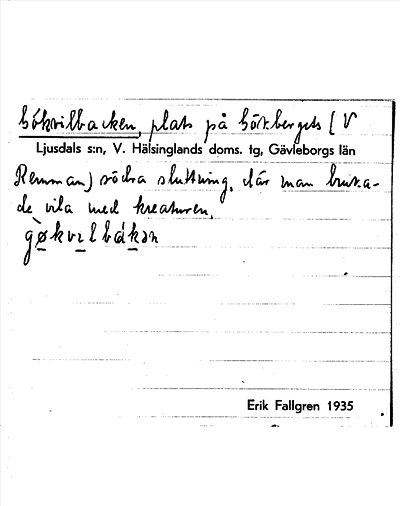 Gökvilbacken, plats på Gökbergets (V
Ljusdals s:n, V. Hälsinglands doms. tg, Gävleborgs län
Remman) södra sluttning, där man bruka-
de vila med kreaturen.
gø̀kvɪlbákən
Erik Fallgren 1935